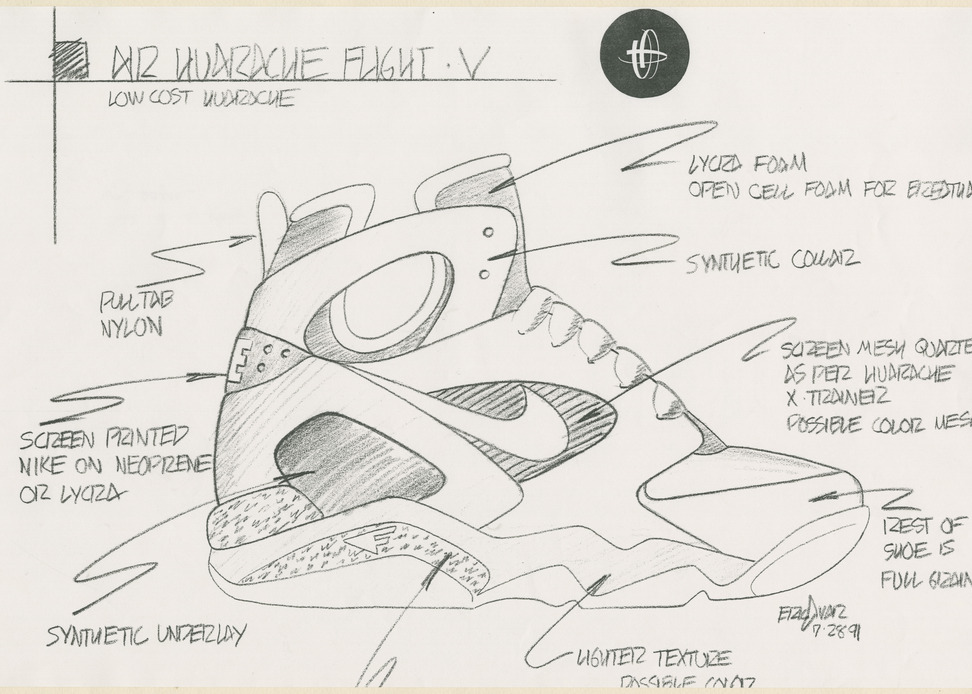 AIR HUARACHE FLIGHT · V
LOW COST HUARACHE
LYCRA FOAM
OPEN CELL FOAM FOR
SYNTHETIC COLLAR
PULL TAB
NYLON
SCREEN MESH QUARTE
AS PER HUARACHE
X-TRAINER
POSSIBLE COLOR MESH
SCREEN PRINTED
NIKE ON NEOPRENE
OR LYCRA
REST OF
SHOE IS
FULL GRAIN
SYNTHETIC UNDERLAY
7·28·91
LIGHTER TEXTURE
POSSIBLE